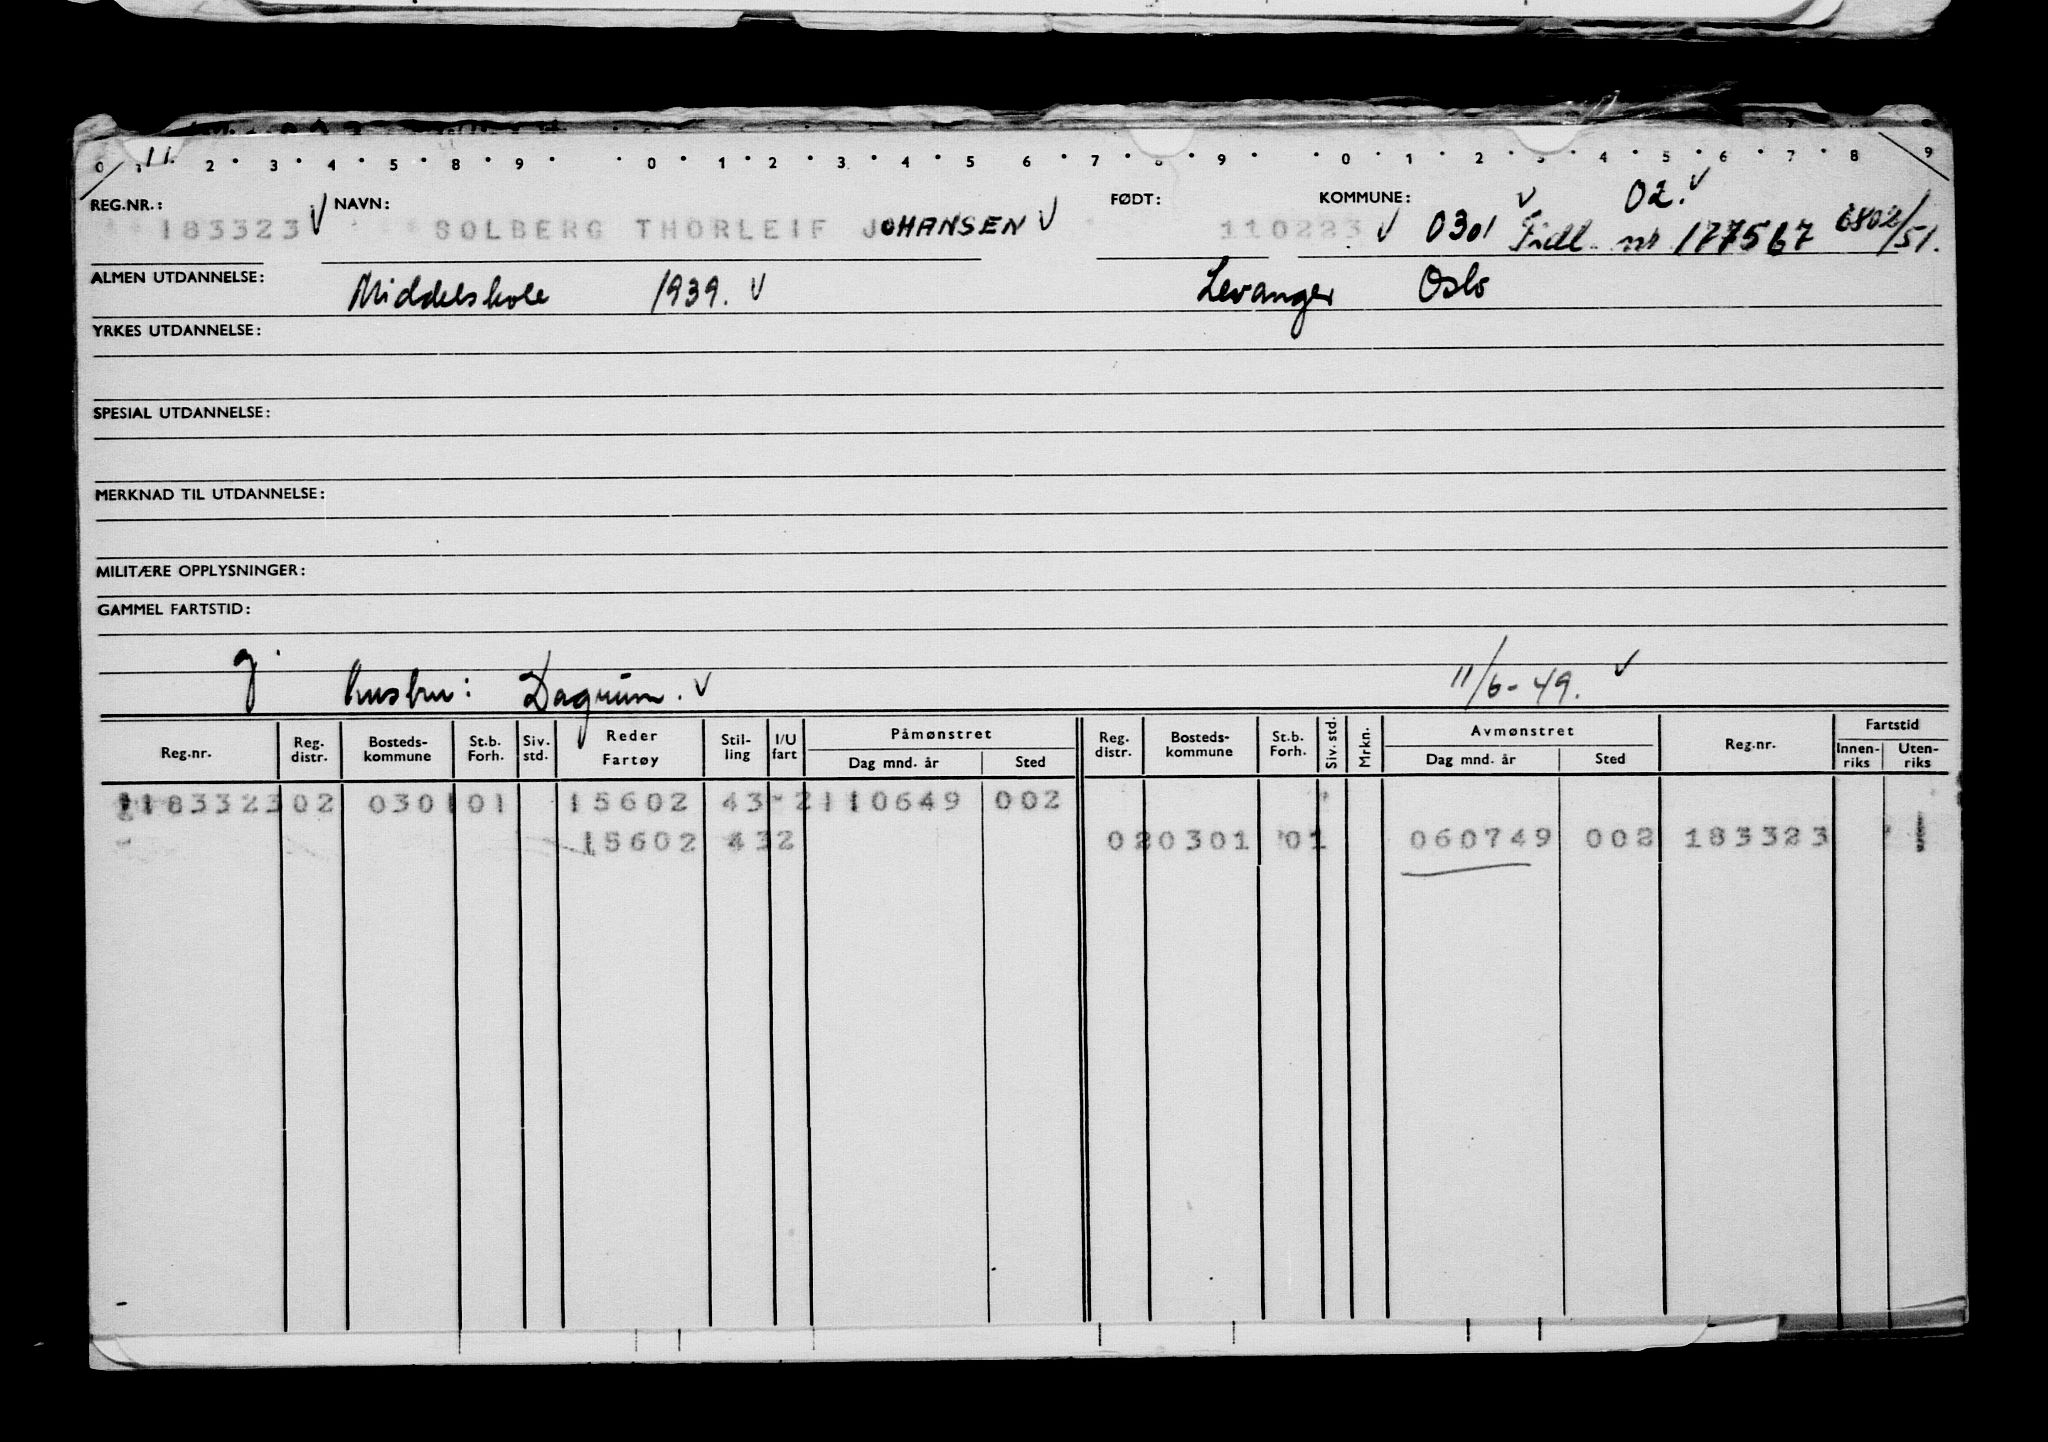 0 11. 2 3 4 5 8 9 0 1 2 3 4 5 6 7 8 9 0 1 2 3 4 5 6 7 8 9
REG.NR.: 183323 √ NAVN: SOLBERG THORLEIF JOHANSEN √ FØDT: 110223 √ KOMMUNE: 0301 √ 02. √ Tidl. nr 177567 6802/51.
ALMEN UTDANNELSE: Middelskole 1939. √ Levanger Oslo
YRKES UTDANNELSE:
SPESIAL UTDANNELSE:
MERKNAD TIL UTDANNELSE:
MILITÆRE OPPLYSNINGER:
GAMMEL FARTSTID:
g. hustru: Dagrun. √ 11/6-49. √
Reg.nr. Reg. distr. Bosteds-kommune St.b. Forh. Siv. std. Reder Fartøy Stil-ling I/U fart Påmønstret Dag mnd. år Sted Reg. distr. Bosteds-kommune St.b. Forh. Siv. std. Mrkn. Avmønstret Dag mnd. år Sted Reg.nr. Fartstid Innen-riks Uten-riks
183323 02 0301 01 15602 43 2 110649 002
15602 43 2 02 0301 01 060749 002 183323 1